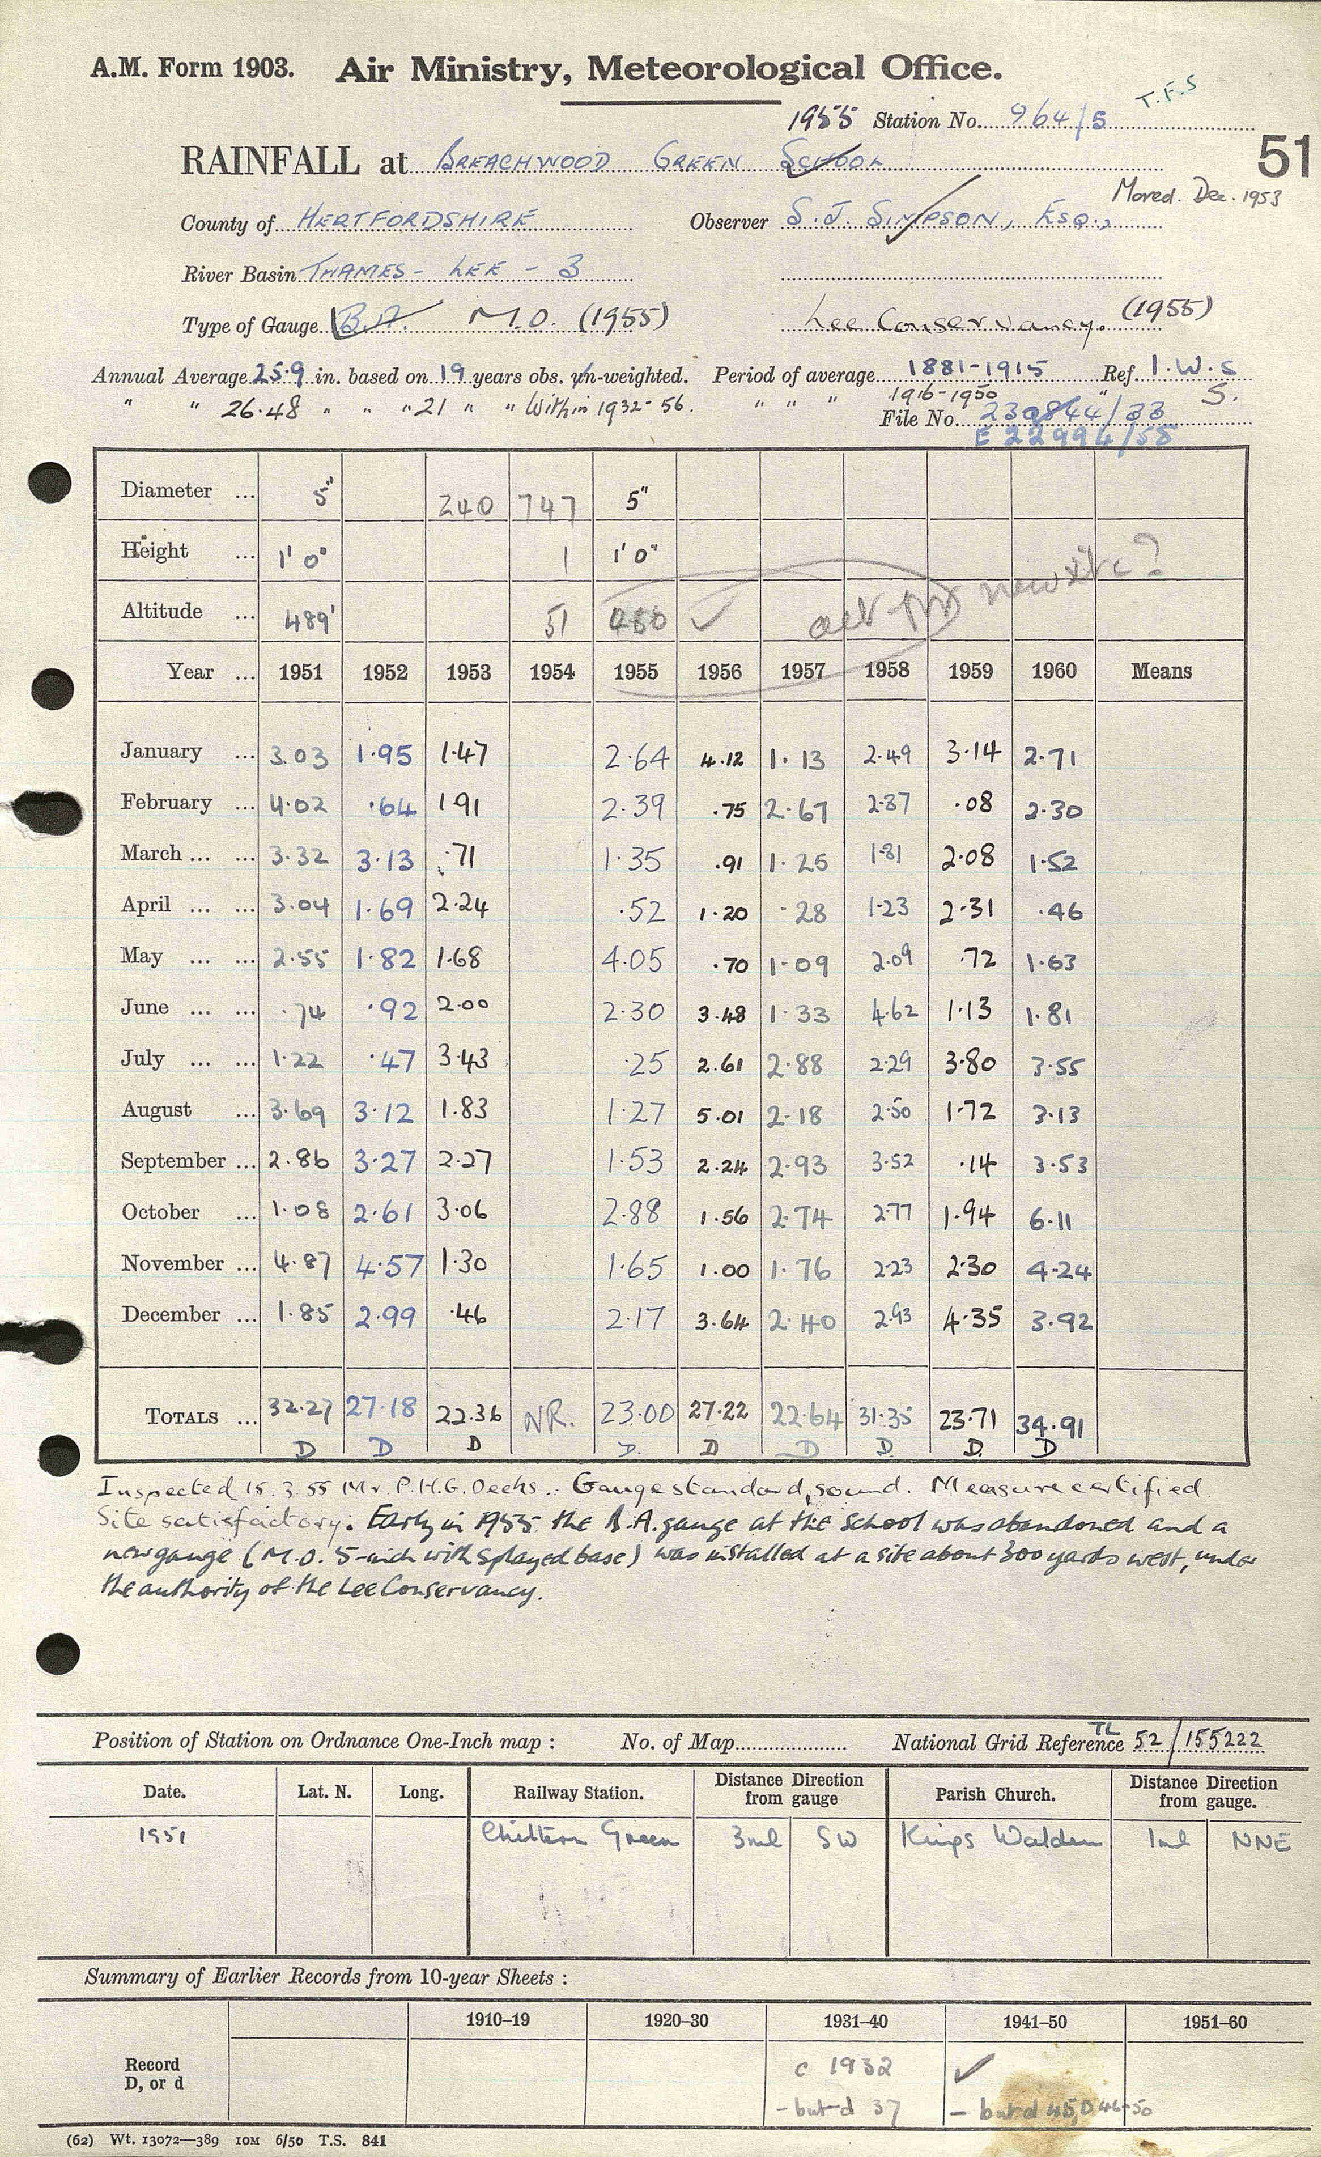 A.M. Form 1903. Air Ministry, Meteorological Office.
T.F.S
1955 Station No. 964/5
51
RAINFALL at BREACHWOOD GREEN SCHOOL
Moved Dec. 1953
County of HERTFORDSHIRE Observer S.J. SIMPSON, ESQ.,
River Basin THAMES - LEE - 3
Type of Gauge B.A. M.O. (1955) Lee Conservancy. (1955)
Annual Average 25.9 in. based on 19 years obs. un-weighted. Period of average 1881-1915 Ref. I.W.S
" " 26.48 " " " 21 " " Within 1932-56. " " " 1916-1950 " S.
File No. 230844/33
E 22994/55
Diameter ... 5" 240 747 5"
Height ... 1' 0" 1 1' 0"
Altitude ... 489' 51 450 ✓ new site?
Year ... 1951 1952 1953 1954 1955 1956 1957 1958 1959 1960 Means
January ... 3.03 1.95 1.47 2.64 4.12 1.13 2.49 3.14 2.71
February ... 4.02 .64 1.91 2.39 .75 2.67 2.87 .08 2.30
March ... ... 3.32 3.13 .71 1.35 .91 1.25 1.81 2.08 1.52
April ... ... 3.04 1.69 2.24 .52 1.20 .28 1.23 2.31 .46
May ... ... 2.55 1.82 1.68 4.05 .70 1.09 2.09 .72 1.63
June ... ... .74 .92 2.00 2.30 3.48 1.33 4.62 1.13 1.81
July ... ... 1.22 .47 3.43 .25 2.61 2.88 2.29 3.80 3.55
August ... 3.69 3.12 1.83 1.27 5.01 2.18 2.50 1.72 3.13
September ... 2.86 3.27 2.27 1.53 2.24 2.93 3.52 .14 3.53
October ... 1.08 2.61 3.06 2.88 1.56 2.74 2.77 1.94 6.11
November ... 4.87 4.57 1.30 1.65 1.00 1.76 2.23 2.30 4.24
December ... 1.85 2.99 .46 2.17 3.64 2.40 2.93 4.35 3.92
TOTALS ... 32.27 27.18 22.36 NR. 23.00 27.22 22.64 31.35 23.71 34.91
D D D D. D D D. D. D
Inspected 15.3.55 Mr. P.H.G. Oecks.. Gauge standard, sound. Measure certified
Site satisfactory. Early in 1955 the B.A. gauge at the School was abandoned and a
new gauge (M.O. 5-inch with splayed base) was installed at a site about 300 yards west, under
the authority of the Lee Conservancy.
Position of Station on Ordnance One-Inch map : No. of Map National Grid Reference TL 52/155222
Date. Lat. N. Long. Railway Station. Distance Direction from gauge Parish Church. Distance Direction from gauge.
1951 Chiltern Green 3ml SW Kings Walden 1ml NNE
Summary of Earlier Records from 10-year Sheets :
1910–19 1920–30 1931–40 1941–50 1951–60
Record D, or d
c 1932 ✓
- but d 37 - but d 45, D 46-50
(62) Wt. 13072—389 10M 6/50 T.S. 841